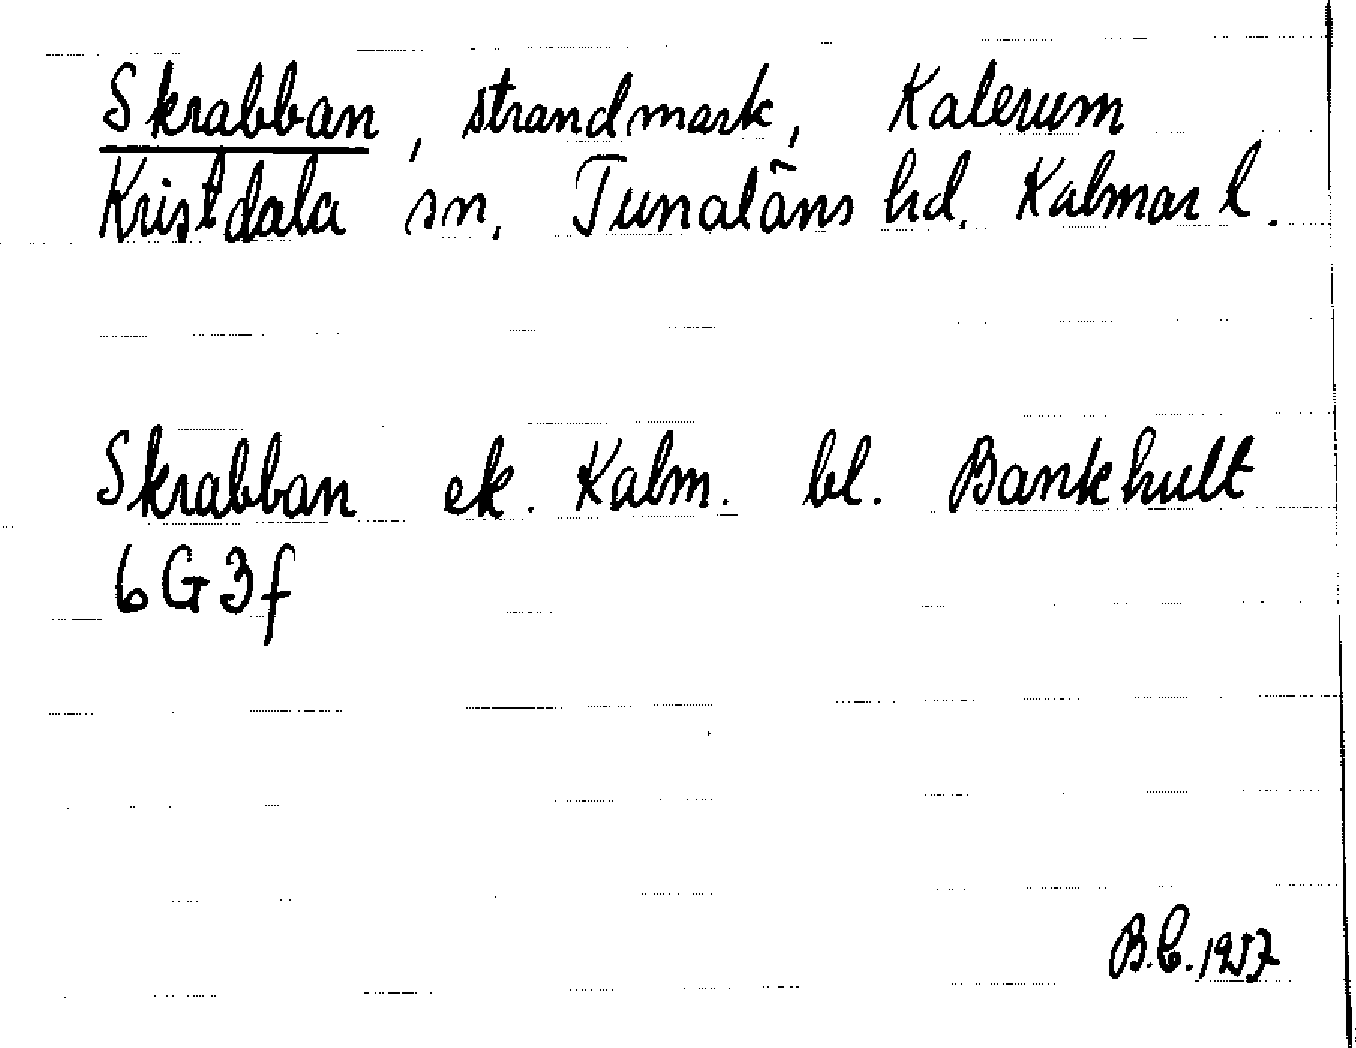 Skrabban, strandmark, Kalerum
Kristdala sn. Tunaläns hd. Kalmar l.
Skrabban ek. Kalm. bl. Bankhult
6G3f
B.C. 1957